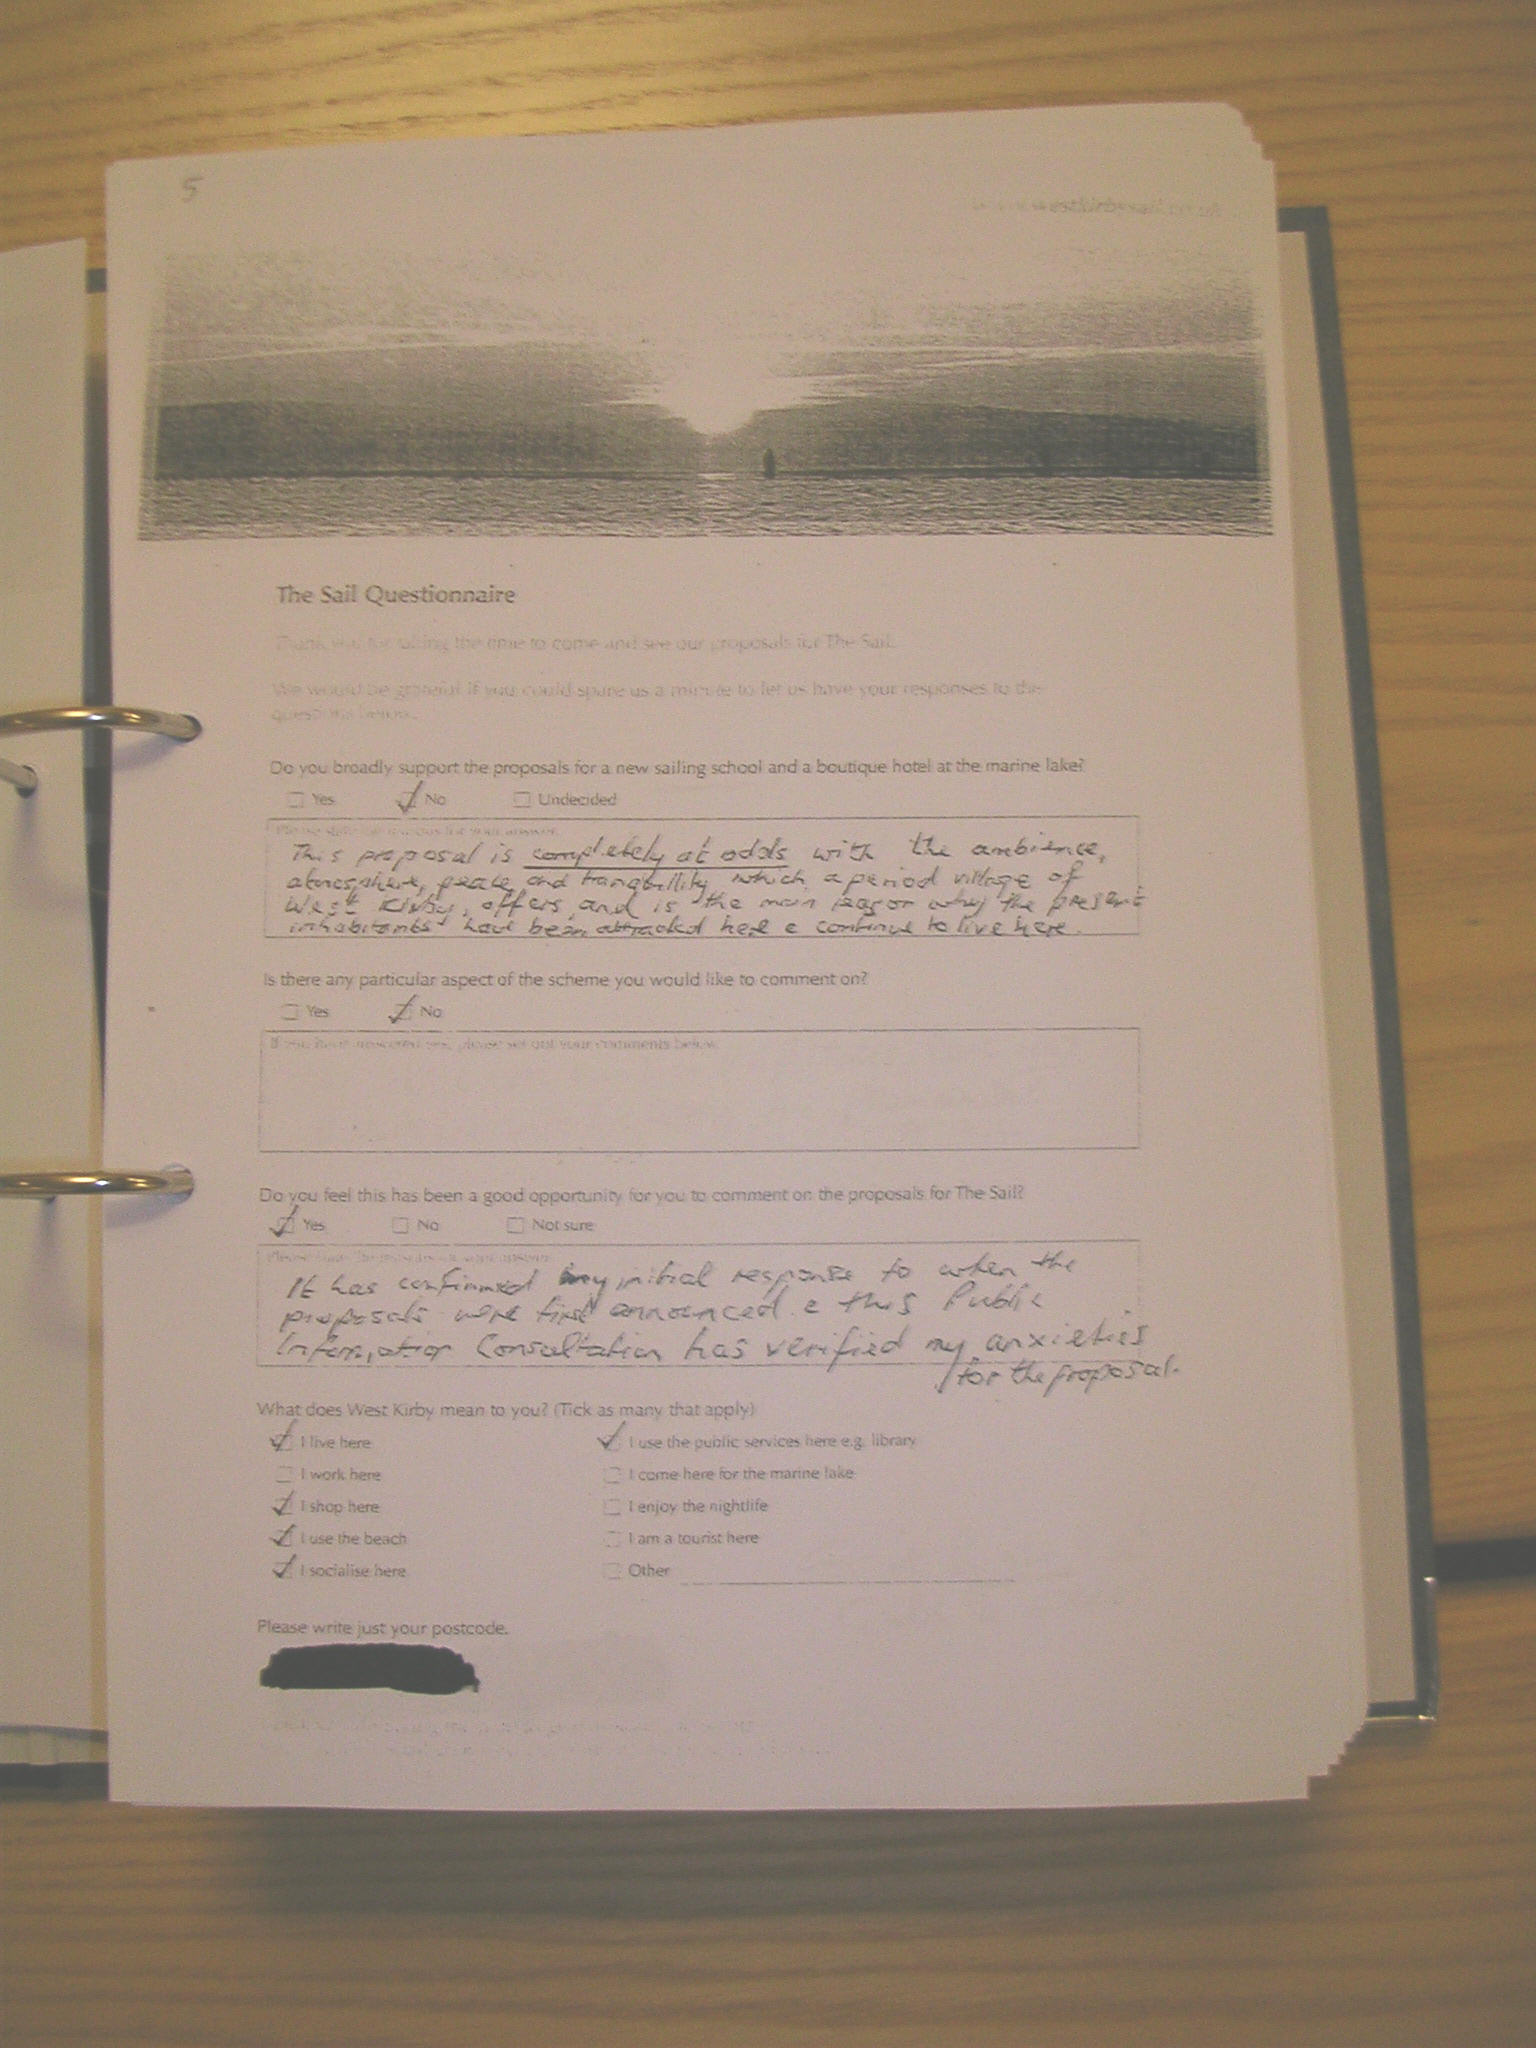 5
The Sail Questionnaire
Thank you for taking the time to come and see our proposals for The Sail.
We would be grateful if you could spare us a minute to let us have your responses to the
questions below.
Do you broadly support the proposals for a new sailing school and a boutique hotel at the marine lake?
Yes No Undecided
Please state the reasons for your answer.
This proposal is completely at odds with the ambience,
atmosphere, peace and tranquillity which a period village of
West Kirby, offers and is the main reason why the present
inhabitants have been attracted here & continue to live here.
Is there any particular aspect of the scheme you would like to comment on?
Yes No
If you have answered yes, please set out your comments below.
Do you feel this has been a good opportunity for you to comment on the proposals for The Sail?
Yes No Not sure
Please state the reasons for your answer.
It has confirmed my initial response to when the
proposals were first announced & this Public
Information Consultation has verified my anxieties
for the proposal.
What does West Kirby mean to you? (Tick as many that apply)
I live here I use the public services here e.g. library
I work here I come here for the marine lake
I shop here I enjoy the nightlife
I use the beach I am a tourist here
I socialise here Other
Please write just your postcode.